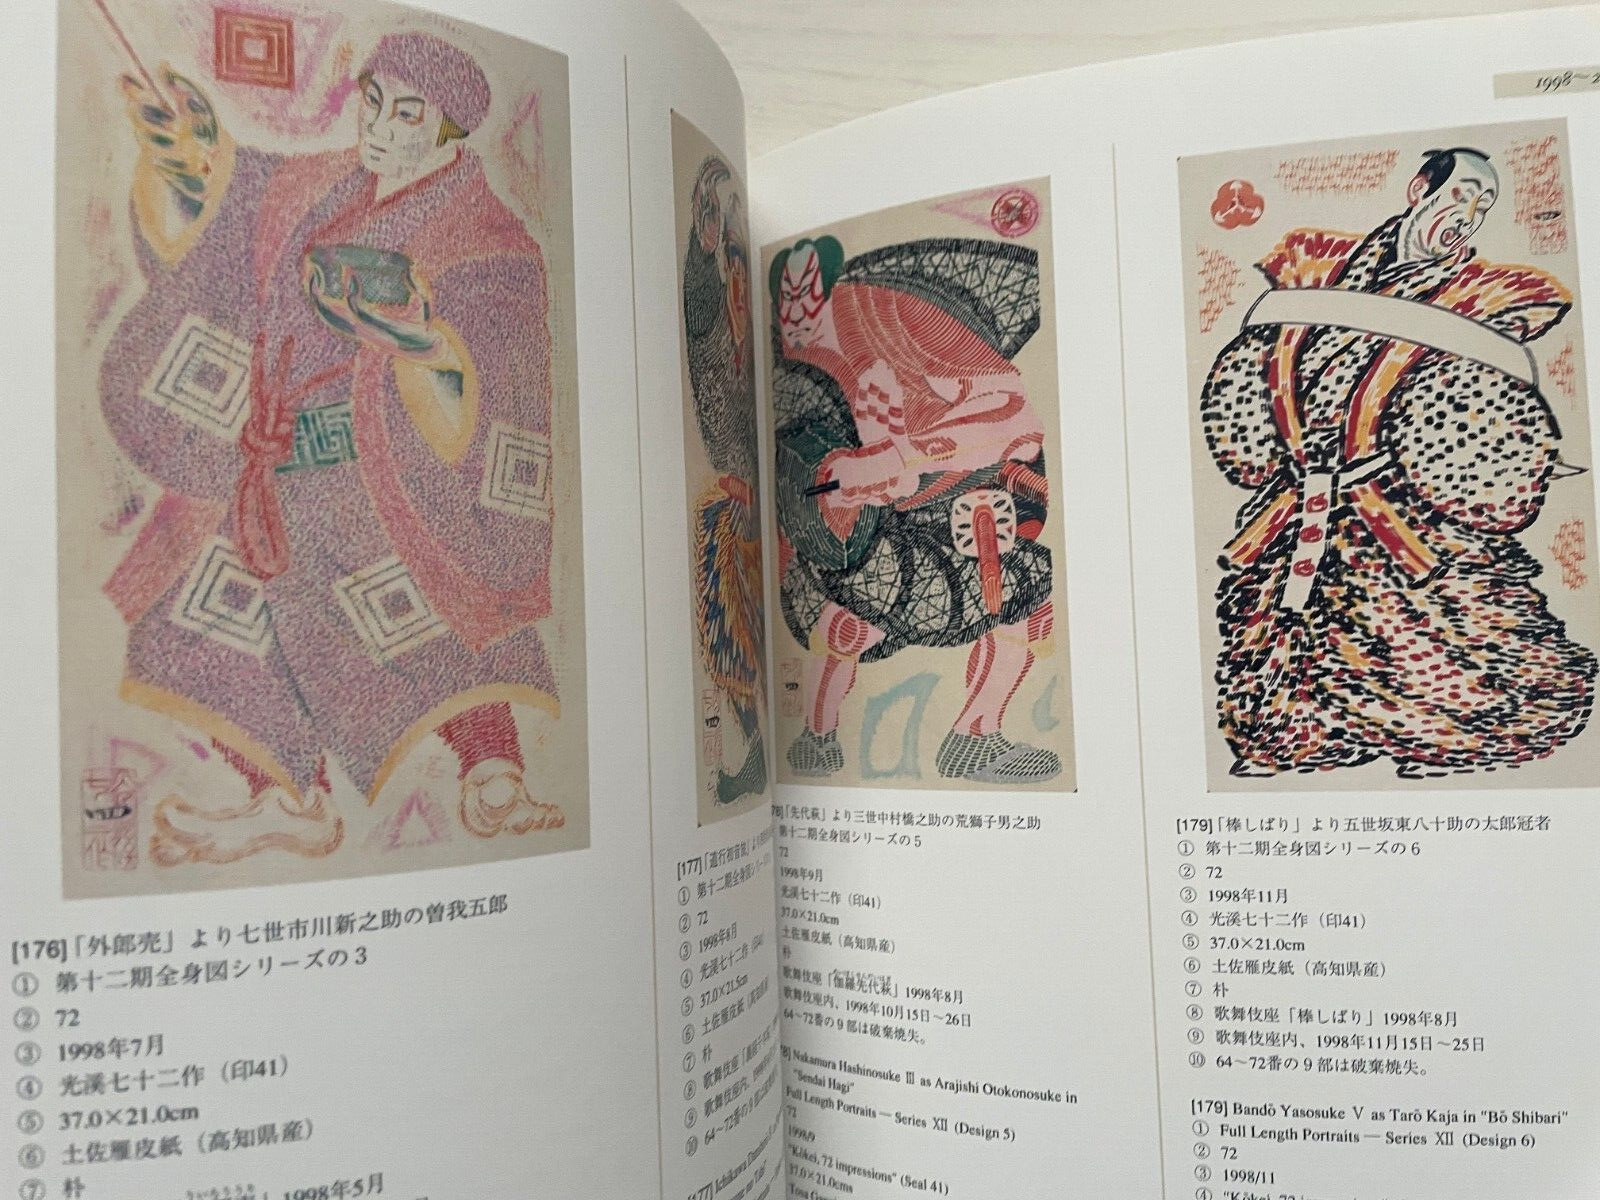 [176]「外郎売」より七世市川新之助の曽我五郎
① 第十二期全身図シリーズの3
② 72
③ 1998年7月
④ 光溪七十二作（印41）
⑤ 37.0×21.0cm
⑥ 土佐雁皮紙（高知県産）
⑦ 朴
1998年5月
[177]「道行初音旅」より
① 第十二期全身図シリーズの
② 72
③ 1998年8月
④ 光溪七十二作（印41）
⑤ 37.0×21.5cm
⑥ 土佐雁皮紙（高知県
⑦ 朴
⑧ 歌舞伎座
⑨ 歌舞伎座内、1998年
⑩ 64〜72番の9部は
[177] Ichikawa
1998〜2
78]「先代萩」より三世中村橋之助の荒獅子男之助
第十二期全身図シリーズの5
72
1998年9月
光溪七十二作（印41）
37.0×21.0cm
土佐雁皮紙（高知県産）
朴
歌舞伎座「伽羅先代萩」1998年8月
歌舞伎座内、1998年10月15日〜26日
64〜72番の9部は破棄焼失。
78] Nakamura Hashinosuke Ⅲ as Arajishi Otokonosuke in
"Sendai Hagi"
Full Length Portraits — Series Ⅻ (Design 5)
72
1998/9
"Kōkei, 72 impressions" (Seal 41)
37.0×21.0cms
Tosa
[179]「棒しばり」より五世坂東八十助の太郎冠者
① 第十二期全身図シリーズの6
② 72
③ 1998年11月
④ 光溪七十二作（印41）
⑤ 37.0×21.0cm
⑥ 土佐雁皮紙（高知県産）
⑦ 朴
⑧ 歌舞伎座「棒しばり」1998年8月
⑨ 歌舞伎座内、1998年11月15日〜25日
⑩ 64〜72番の9部は破棄焼失。
[179] Bandō Yasosuke Ⅴ as Tarō Kaja in "Bō Shibari"
① Full Length Portraits — Series Ⅻ (Design 6)
② 72
③ 1998/11
④ "Kōkei, 72 impressions"